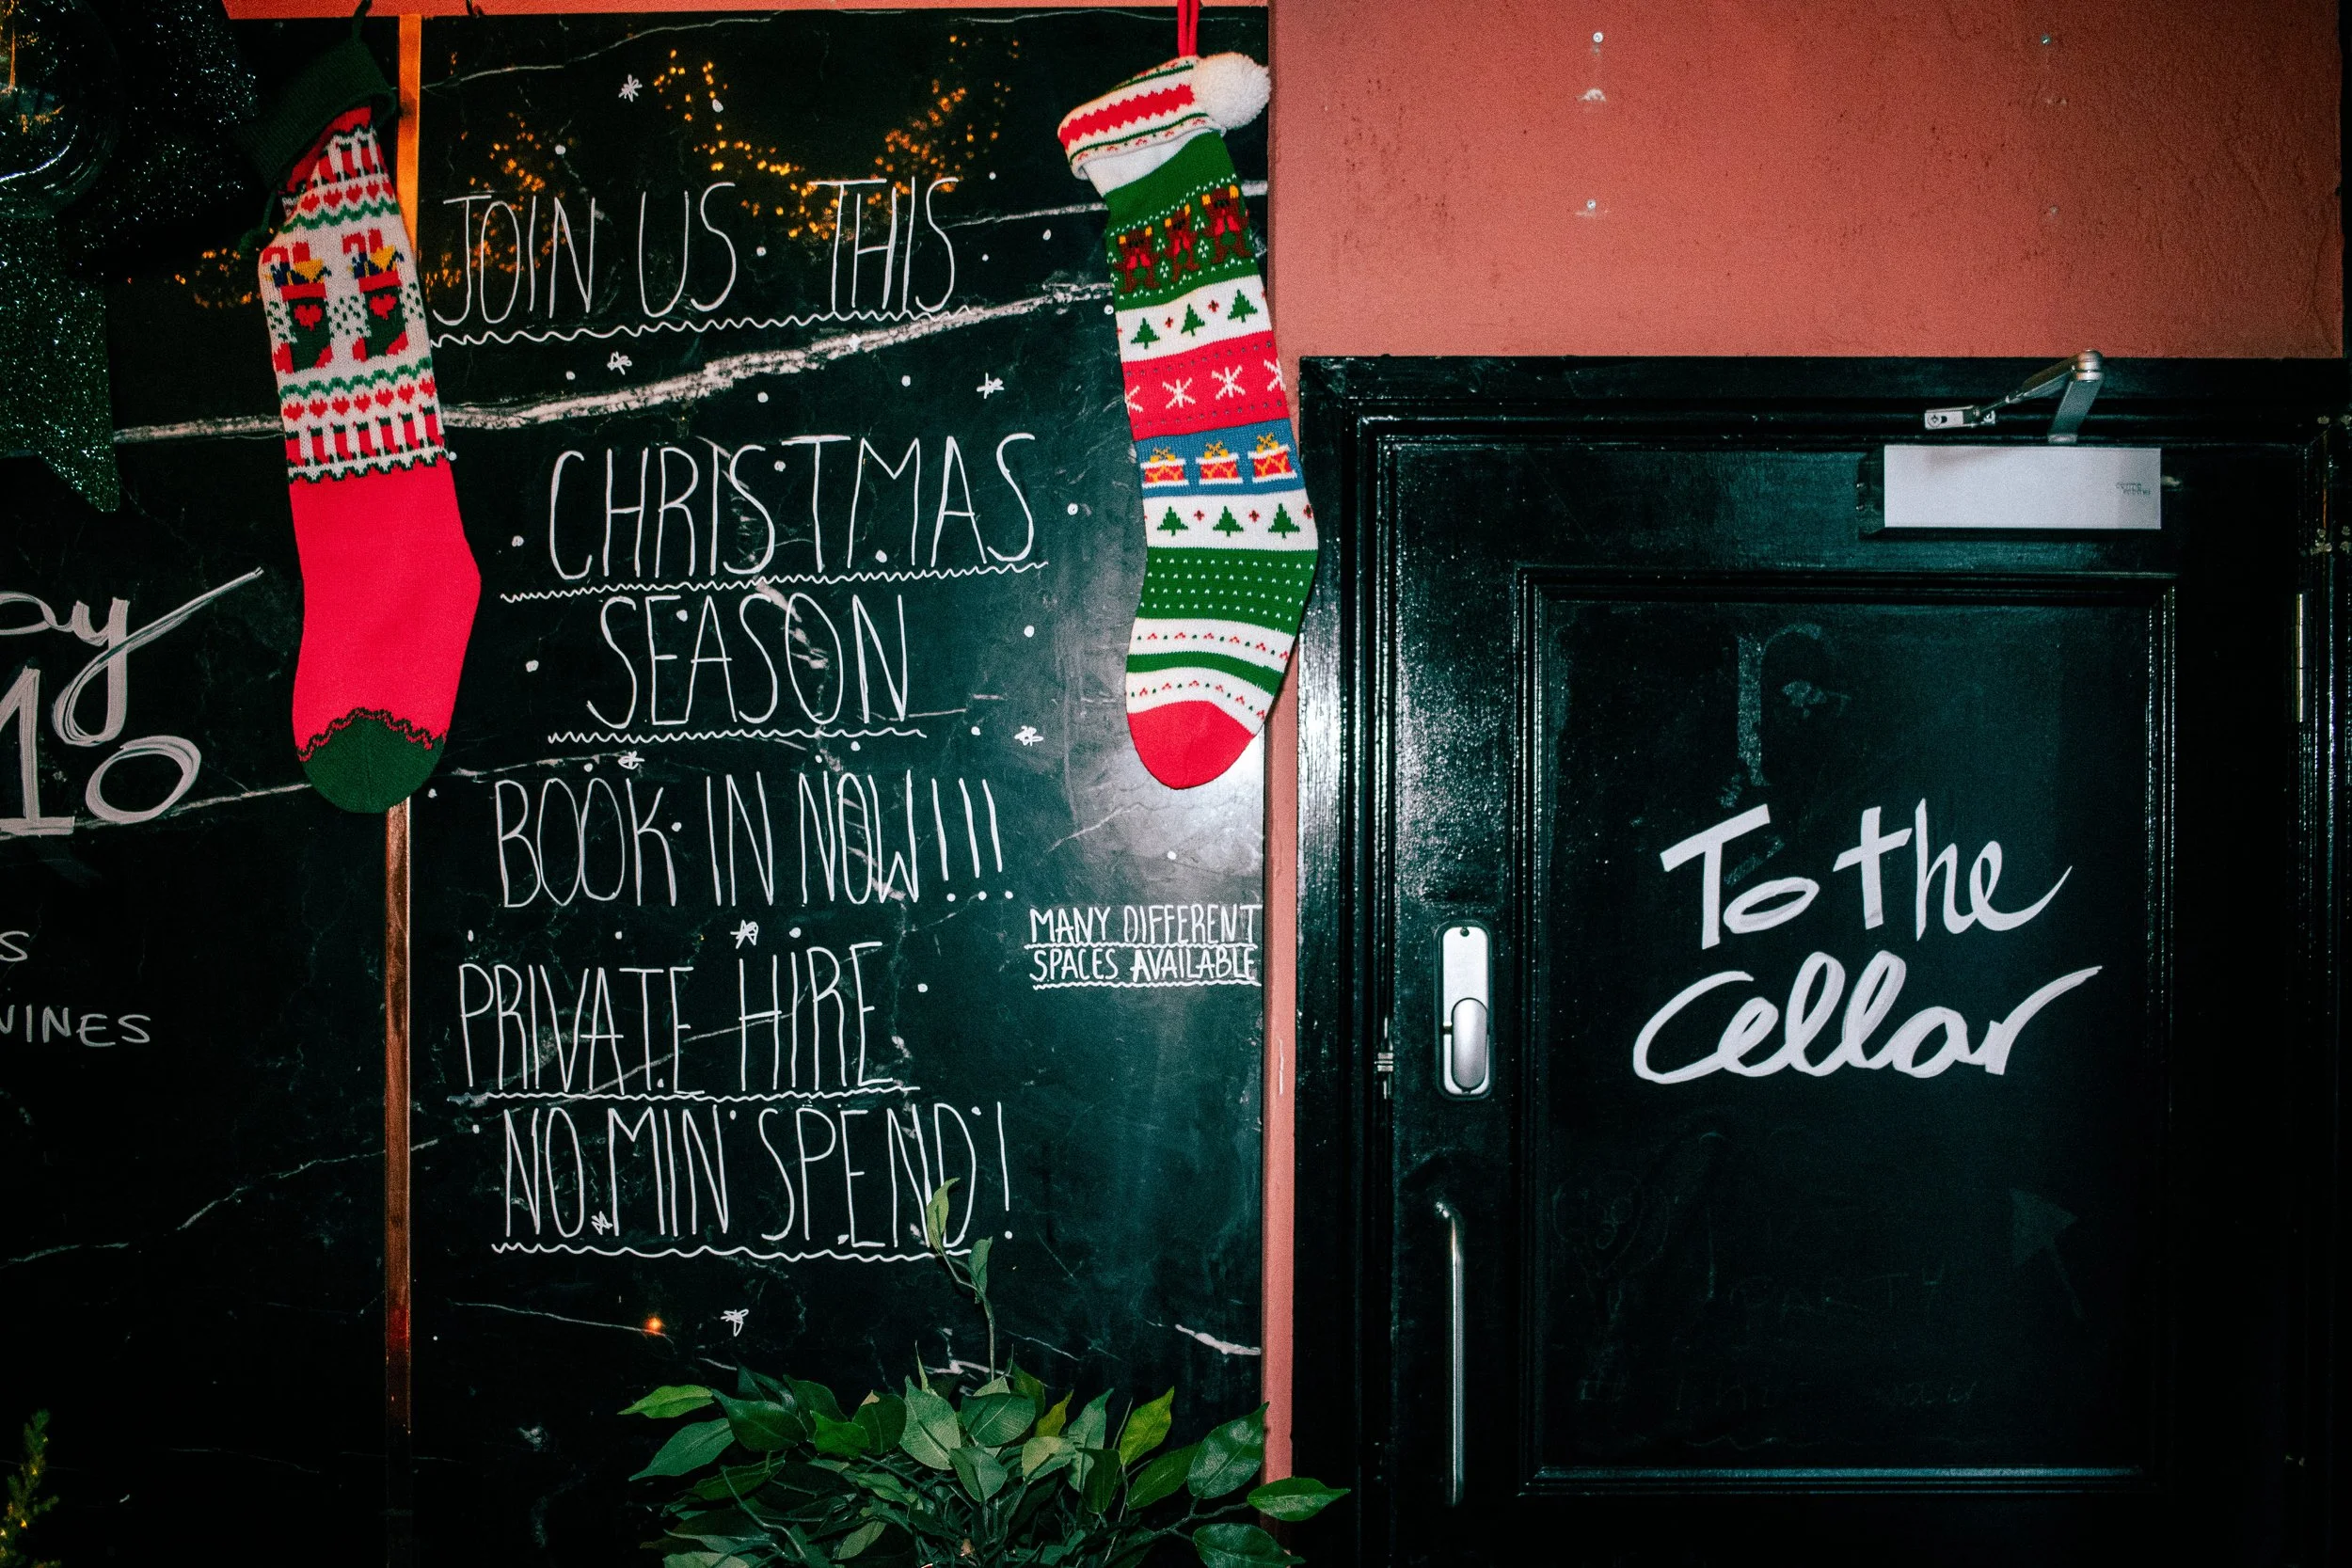 10
VINES
JOIN US THIS
CHRISTMAS
SEASON
BOOK IN NOW!!!
MANY DIFFERENT
SPACES AVAILABLE
PRIVATE HIRE
NO MIN SPEND!
To the
Cellar